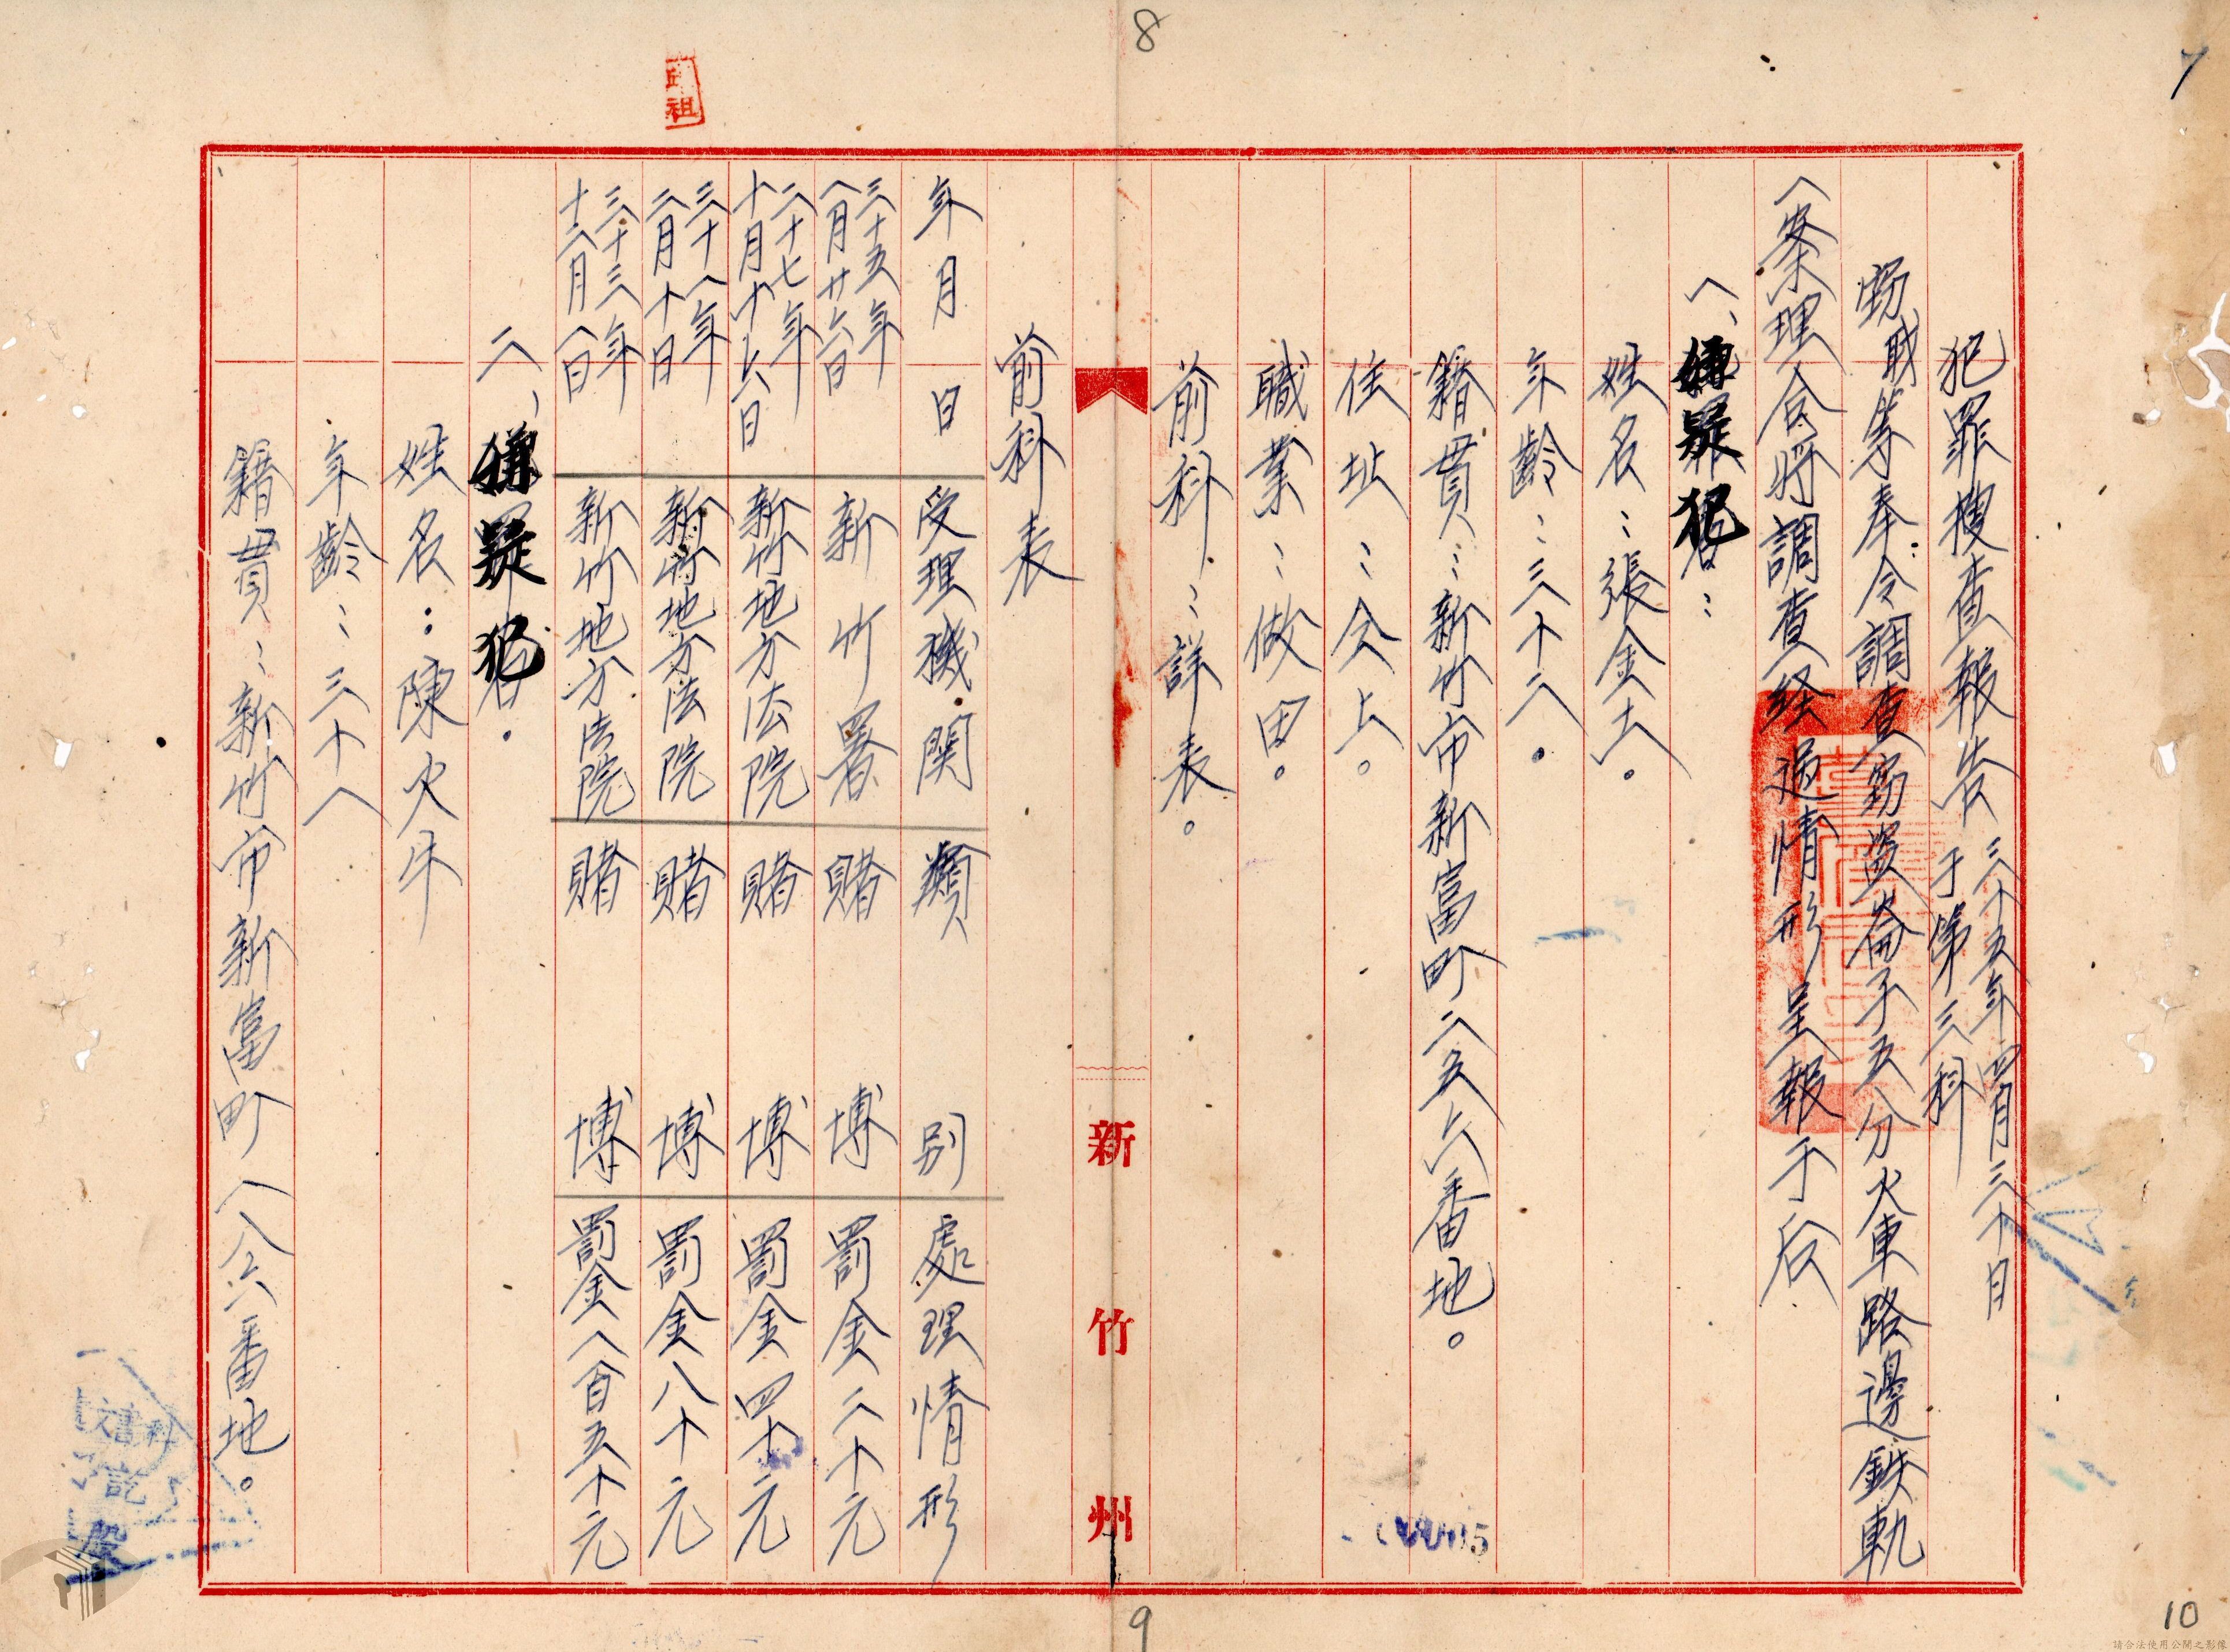 犯罪搜查報告
三十五年四月三十日
于第三科
竊取等奉令調查竊盜崙子五分火車路邊鉄軌
一案理合將調查経過情形呈報于后
一、嫌疑犯:
姓名:張金土。
年齡:三十二。
籍貫:新竹市新富町二五六番地。
住址:仝上。
職業:做田。
前科:詳表。
新竹州
前科表
年月日 受理機関 類別 處理情形
二十五年一月廿六日 新竹署 賭博 罰金二十元
二十七年十月十六日 新竹地方法院 賭博 罰金四十元
三十一年二月十日 新竹地方法院 賭博 罰金八十元
三十三年十二月一日 新竹地方法院 賭博 罰金一百五十元
二、嫌疑犯。
姓名:陳火牛
年齡:三十八
籍貫:新竹市新富町一八六番地。
8
7
9
10
請合法使用公開之影像